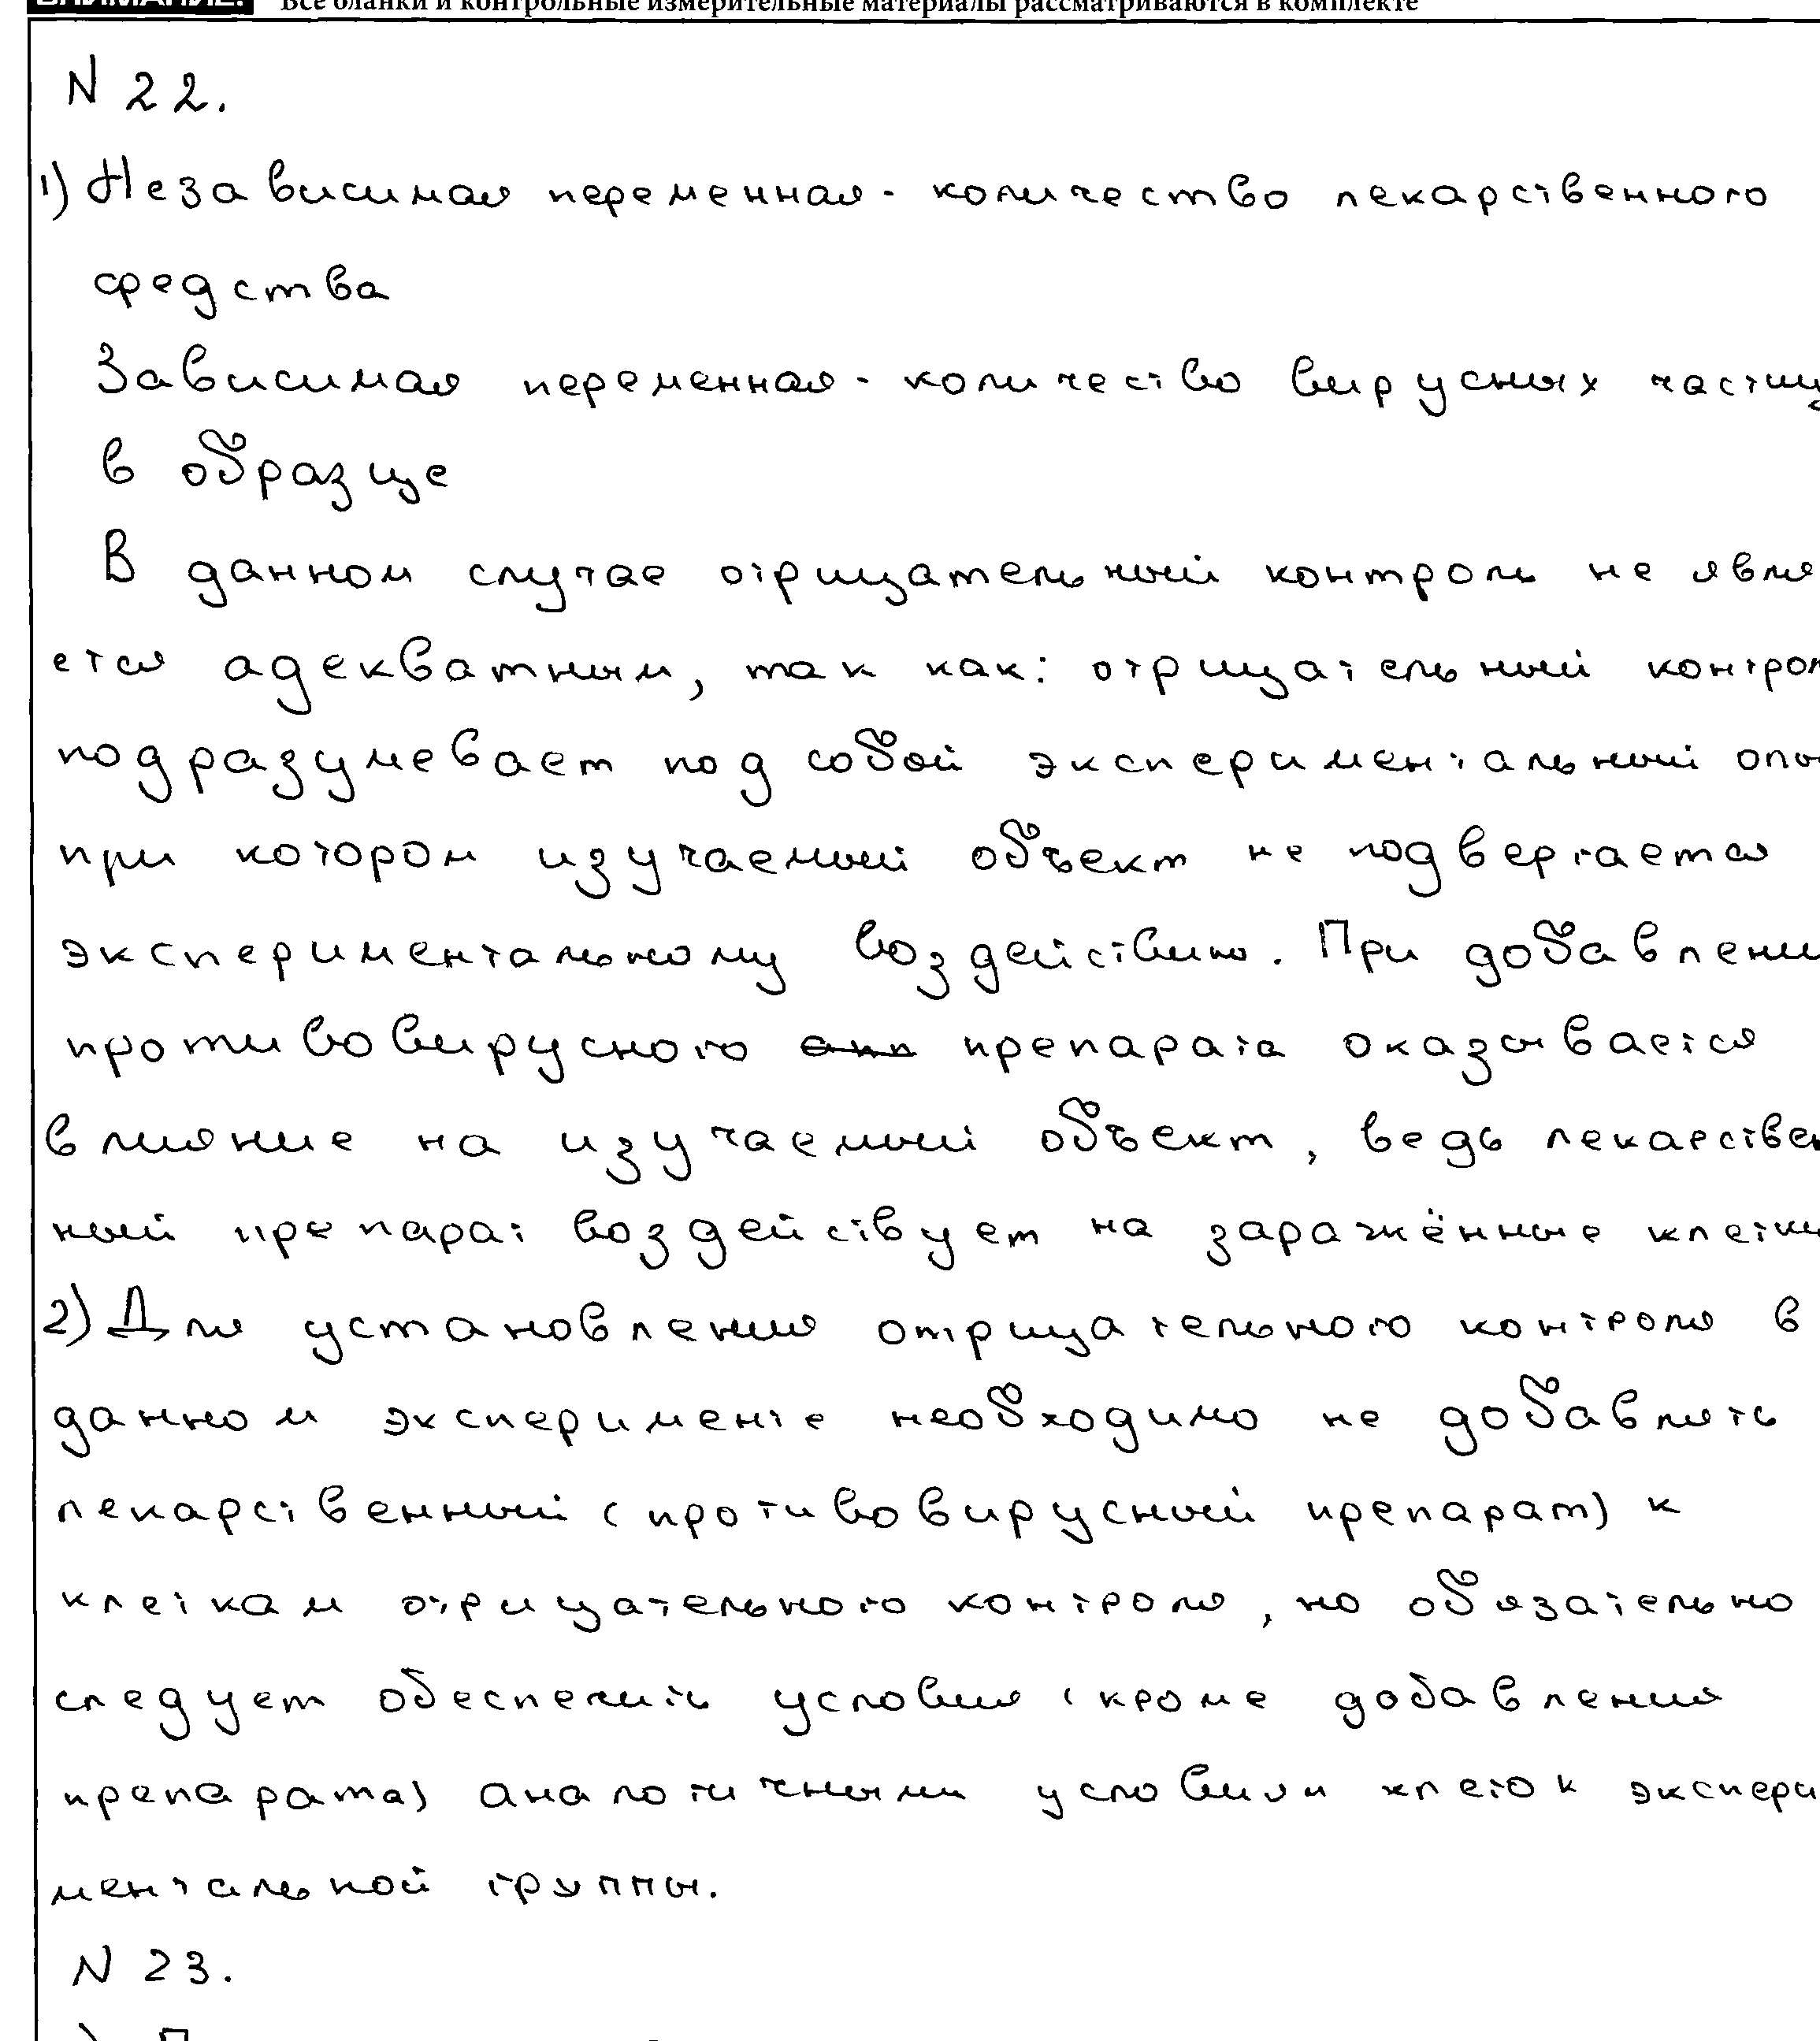 ВНИМАНИЕ! Все бланки и контрольные измерительные материалы рассматриваются в комплекте
N 22.
1) Независимая переменная - количество лекарственного
средства
Зависимая переменная - количество вирусных частиц
в образце
В данном случае отрицательный контроль не явля
ется адекватным, так как: отрицательный контрол
подразумевает под собой экспериментальный опы
при котором изучаемый объект не подвергается
экспериментальному воздействию. При добавлени
противовирусного препарата оказывается
влияние на изучаемый объект, ведь лекарствен
ный препарат воздействует на заражённые клетки
2) Для установления отрицательного контроля в
данном эксперименте необходимо не добавлять
лекарственный (противовирусный препарат) к
клеткам отрицательного контроля, но обязательно
следует обеспечить условия (кроме добавления
препарата) аналогичными условиям клеток экспери
ментальной группы.
N 23.